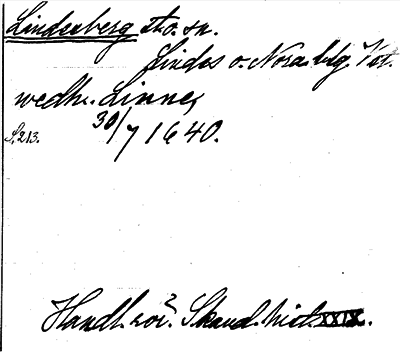 Lindesberg st. o. sn.
Lindes o. Nora blg, Vstl.
wedh. Linnes,
S. 213. 30/7 1640.
Handl. rör. Skand. hist. XXIX.